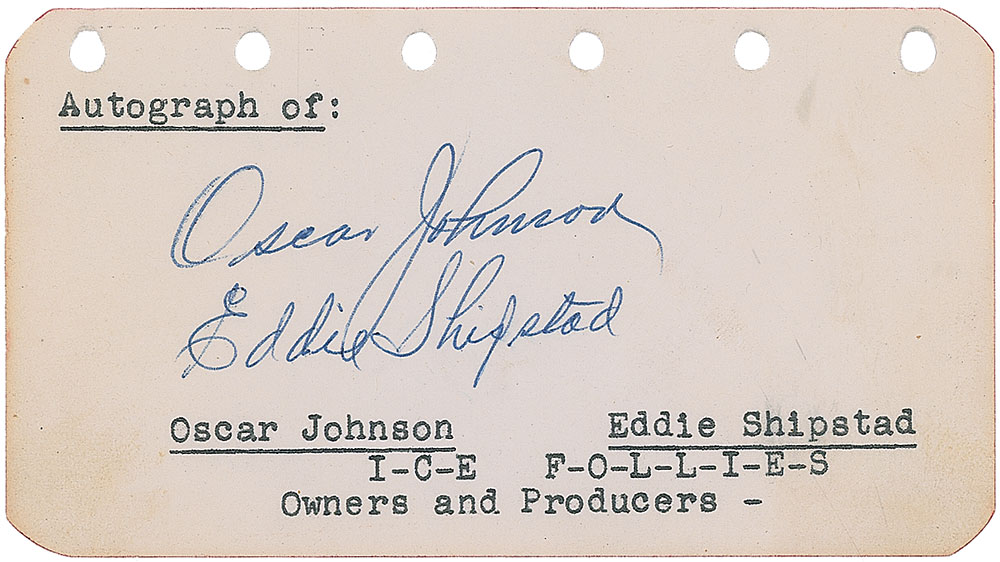 Autograph of:
Oscar Johnson
Eddie Shipstad
Oscar Johnson Eddie Shipstad
I-C-E F-O-L-L-I-E-S
Owners and Producers -